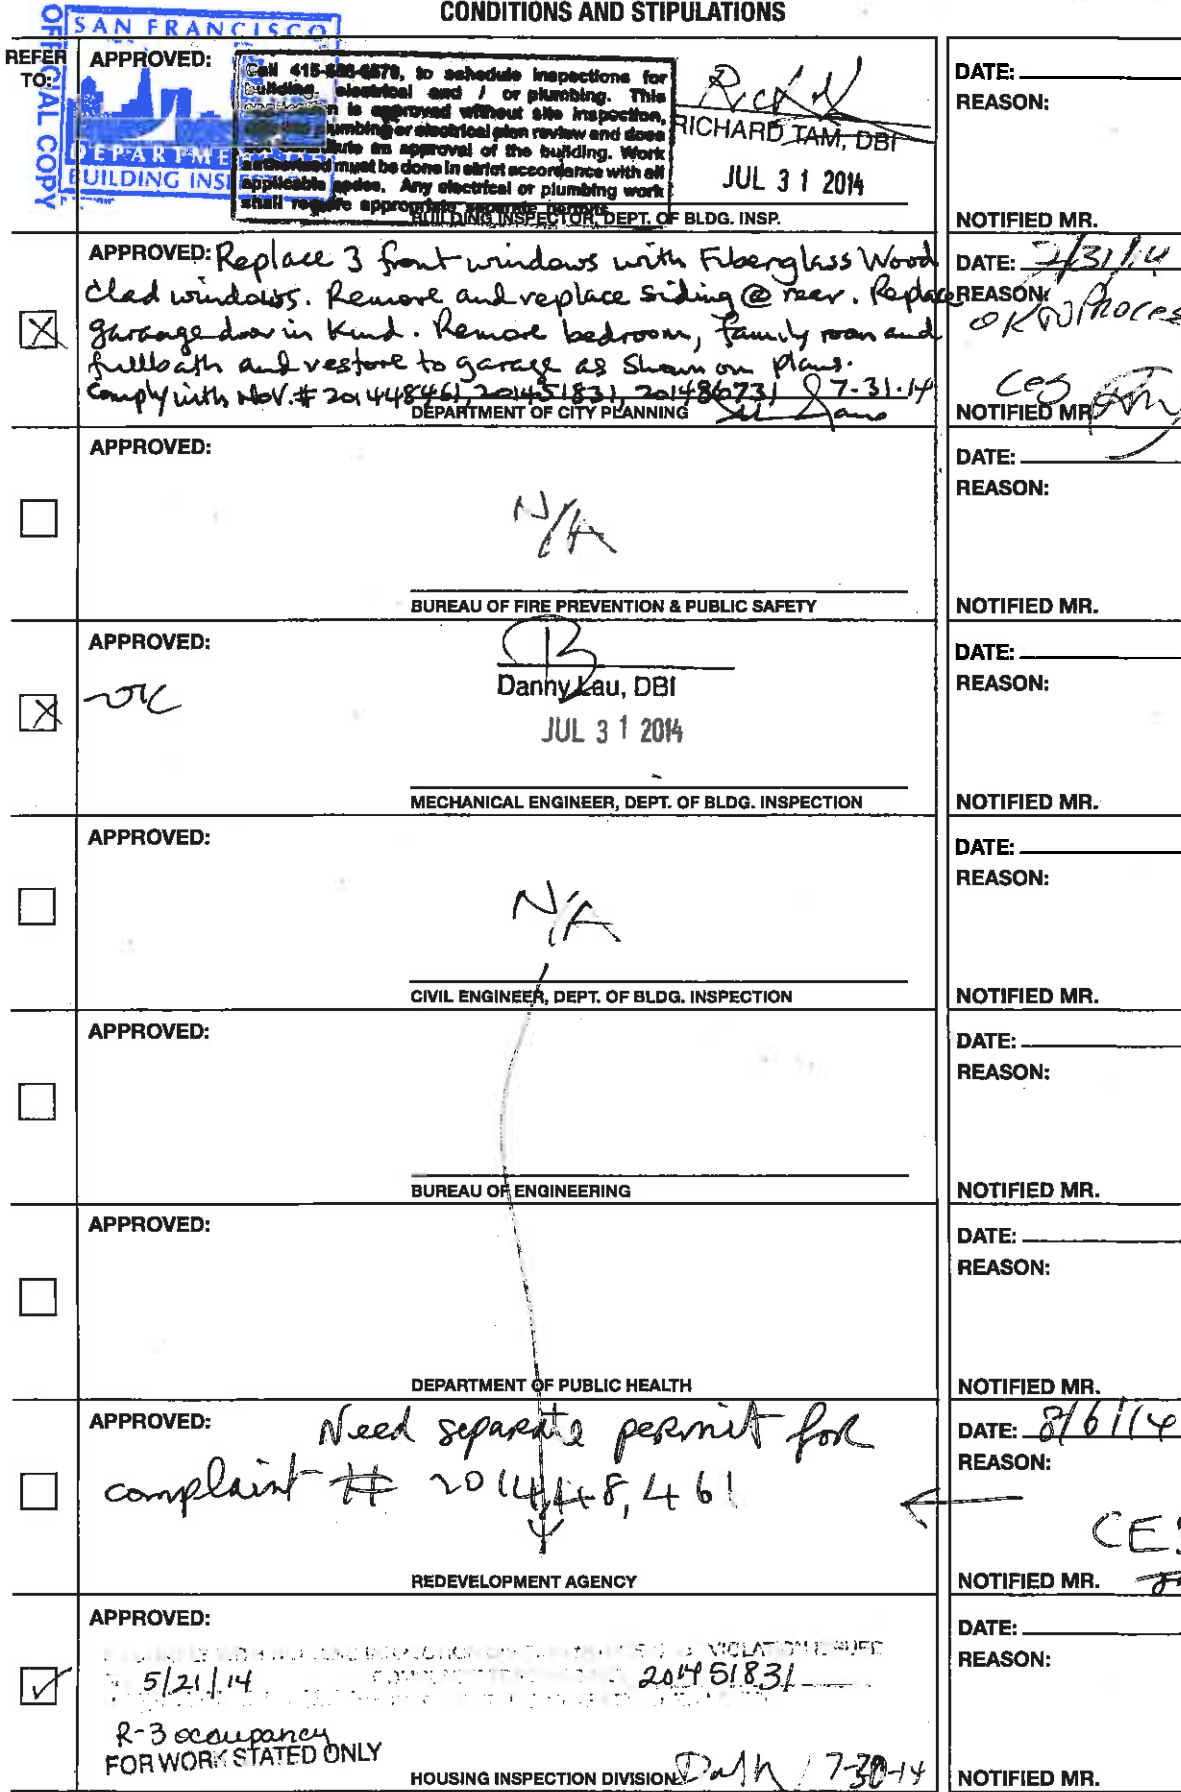 CONDITIONS AND STIPULATIONS
OFFICIAL COPY
SAN FRANCISCO
DEPARTME
BUILDING INS
REFER TO:
APPROVED:
Call 415-558-6570, to schedule inspections for
building, electrical and / or plumbing. This
is approved without site inspection,
plumbing or electrical plan review and does
an approval of the building. Work
authorized must be done in strict accordance with all
applicable codes. Any electrical or plumbing work
shall require appropriate separate permits.
RICHARD TAM, DBI
JUL 31 2014
BUILDING INSPECTOR, DEPT. OF BLDG. INSP.
DATE:
REASON:
NOTIFIED MR.
APPROVED: Replace 3 front windows with Fiberglass Wood
Clad windows. Remove and replace siding @ rear. Replace
garange door in kind. Remove bedroom, family room and
fullbath and restore to garage as shown on plans.
Comply with NOV. # 201448461, 201451831, 201486731 7-31-14
DEPARTMENT OF CITY PLANNING
X
DATE: 7/31/14
REASON:
OK TO PROCES
CES
NOTIFIED MR.
APPROVED:
N/A
BUREAU OF FIRE PREVENTION & PUBLIC SAFETY
DATE:
REASON:
NOTIFIED MR.
APPROVED:
OK
X
Danny Lau, DBI
JUL 31 2014
MECHANICAL ENGINEER, DEPT. OF BLDG. INSPECTION
DATE:
REASON:
NOTIFIED MR.
APPROVED:
N/A
CIVIL ENGINEER, DEPT. OF BLDG. INSPECTION
DATE:
REASON:
NOTIFIED MR.
APPROVED:
BUREAU OF ENGINEERING
DATE:
REASON:
NOTIFIED MR.
APPROVED:
DEPARTMENT OF PUBLIC HEALTH
DATE:
REASON:
NOTIFIED MR.
APPROVED: Need separate permit for
complaint # 201448,461
REDEVELOPMENT AGENCY
DATE: 8/6/14
REASON:
CES
NOTIFIED MR.
APPROVED:
VIOLATION ISSUED
5/21/14 201451831
R-3 occupancy
FOR WORK STATED ONLY
HOUSING INSPECTION DIVISION 7-30-14
DATE:
REASON:
NOTIFIED MR.